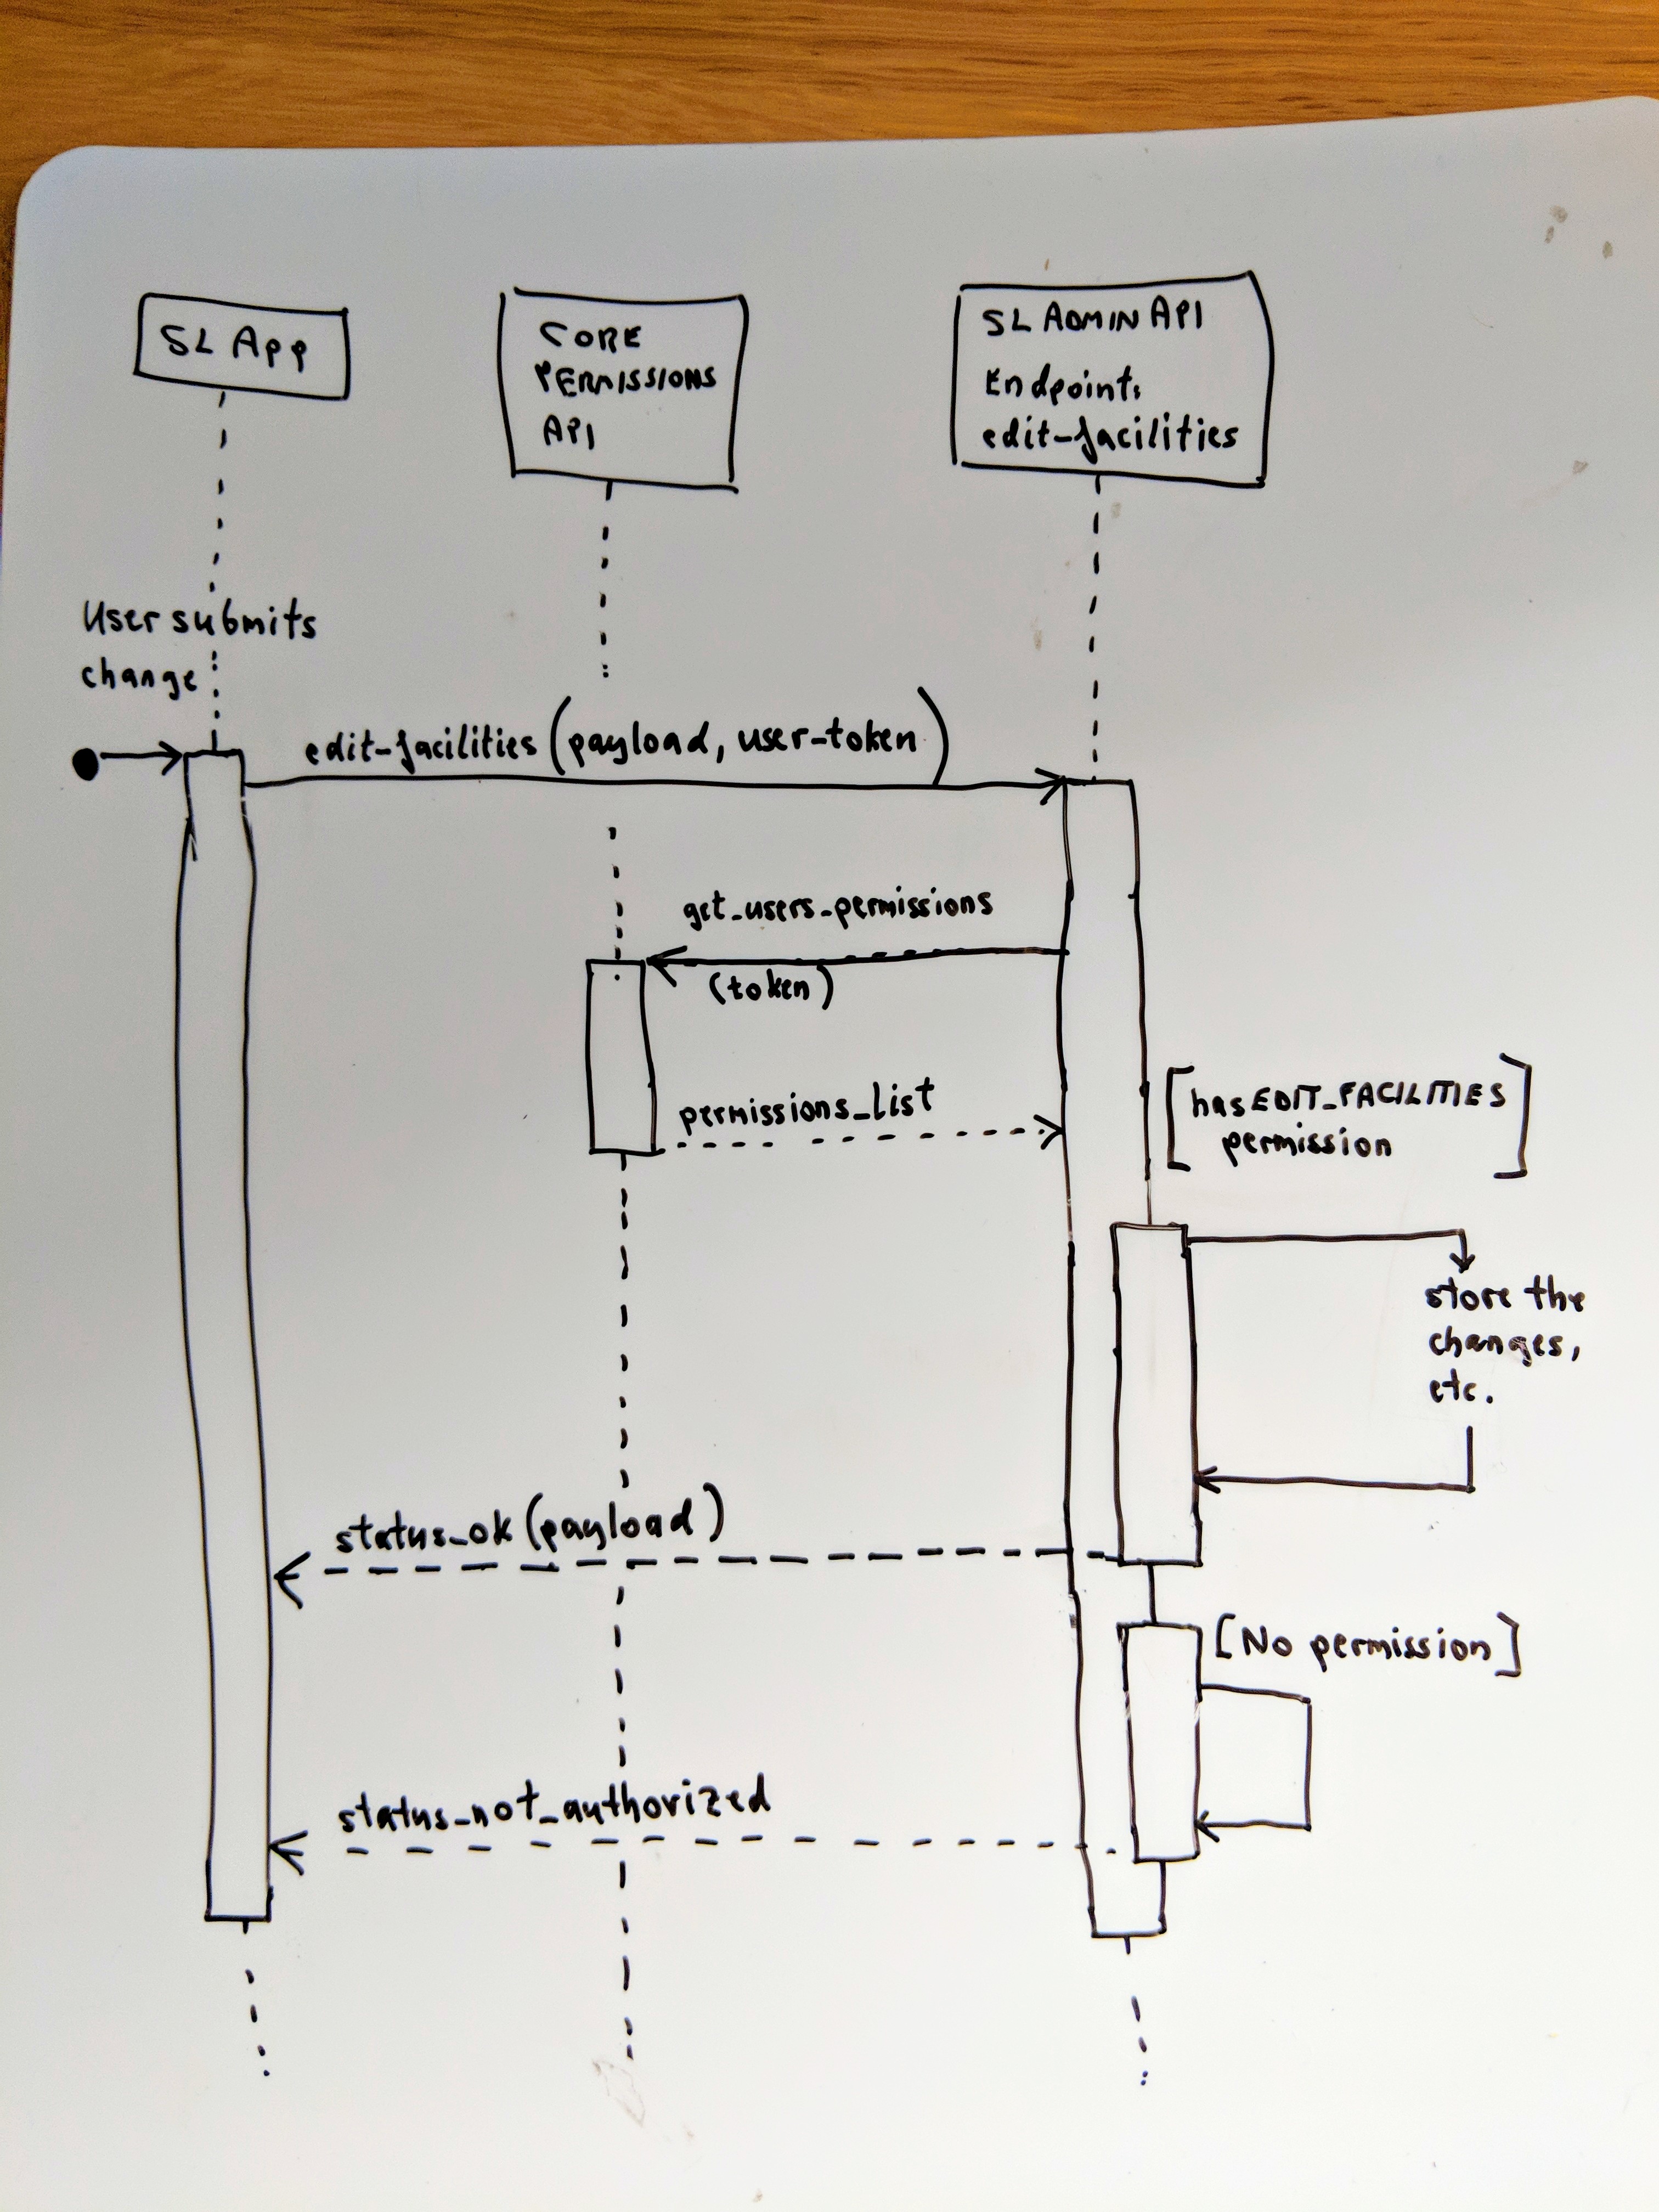 SL App
CORE
PERMISSIONS
API
SL ADMIN API
Endpoint:
edit-facilities
User submits
change
edit-facilities (payload, user-token)
get_users_permissions
(token)
permissions_list
[has EDIT_FACILITIES
permission]
store the
changes,
etc.
status_ok (payload)
[No permission]
status_not_authorized